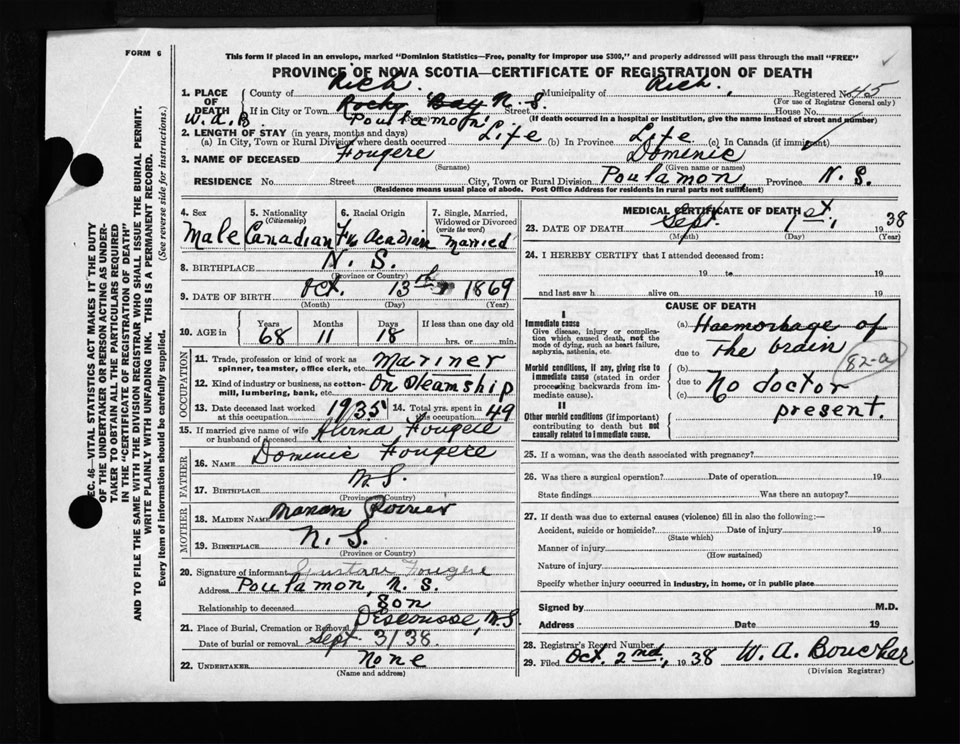 FORM 6
This form if placed in an envelope, marked "Dominion Statistics—Free, penalty for improper use $300," and properly addressed will pass through the mail "FREE"
PROVINCE OF NOVA SCOTIA—CERTIFICATE OF REGISTRATION OF DEATH
1. PLACE OF DEATH County of Rich. Municipality of Rich. Registered No. 45
(For use of Registrar General only)
If in City or Town Rocky Bay N. S. Street House No.
W. A. B. Poulamon (If death occurred in a hospital or institution, give the name instead of street and number)
2. LENGTH OF STAY (in years, months and days)
(a) In City, Town or Rural Division where death occurred Life (b) In Province Life (c) In Canada (if immigrant)
3. NAME OF DECEASED Fougere Dominic
(Surname) (Given name or names)
RESIDENCE No. Street City, Town or Rural Division Poulamon, Province N. S.
(Residence means usual place of abode. Post Office Address for residents in rural parts not sufficient)
4. Sex Male
5. Nationality (Citizenship) Canadian
6. Racial Origin Fr. Acadian
7. Single, Married, Widowed or Divorced (write the word) Married
8. BIRTHPLACE N. S.
(Province or Country)
9. DATE OF BIRTH Oct. 13th 1869
(Month) (Day) (Year)
10. AGE in Years 68 Months 11 Days 18 If less than one day old hrs. or min.
OCCUPATION
11. Trade, profession or kind of work as spinner, teamster, office clerk, etc. Mariner
12. Kind of industry or business, as cotton-mill, lumbering, bank, etc. On Steamship
13. Date deceased last worked at this occupation 1935
14. Total yrs. spent in this occupation 49
15. If married give name of wife or husband of deceased Fougere
FATHER
16. NAME Dominic Fougere
17. BIRTHPLACE N. S.
(Province or Country)
MOTHER
18. MAIDEN NAME Poirier
19. BIRTHPLACE N. S.
(Province or Country)
20. Signature of informant Fougere
Address Poulamon, N. S.
Relationship to deceased Son
21. Place of Burial, Cremation or Removal Descousse, N.S.
Date of burial or removal Sept 3/38.
22. UNDERTAKER None
(Name and address)
MEDICAL CERTIFICATE OF DEATH
23. DATE OF DEATH Sept. 1st, 1938
(Month) (Day) (Year)
24. I HEREBY CERTIFY that I attended deceased from:
19 to 19
and last saw h alive on 19
CAUSE OF DEATH
I
Immediate cause
Give disease, injury or complication which caused death, not the mode of dying, such as heart failure, asphyxia, asthenia, etc.
Morbid conditions, if any, giving rise to immediate cause (stated in order proceeding backwards from immediate cause).
II
Other morbid conditions (if important) contributing to death but not causally related to immediate cause.
(a) Haemorhage of
due to The brain
82-a
(b)
due to No doctor
(c) present.
25. If a woman, was the death associated with pregnancy?
26. Was there a surgical operation? Date of operation 19
State findings Was there an autopsy?
27. If death was due to external causes (violence) fill in also the following:—
Accident, suicide or homicide? Date of injury 19
(State which)
Manner of injury
(How sustained)
Nature of injury
Specify whether injury occurred in industry, in home, or in public place
Signed by M.D.
Address Date 19
28. Registrar's Record Number
29. Filed Oct. 2nd, 1938 W. A. Boucher
(Division Registrar)
SEC. 46—VITAL STATISTICS ACT MAKES IT THE DUTY
OF THE UNDERTAKER OR PERSON ACTING AS UNDER-
TAKER TO OBTAIN ALL THE PARTICULARS REQUIRED
IN THE "CERTIFICATE OF REGISTRATION OF DEATH"
AND TO FILE THE SAME WITH THE DIVISION REGISTRAR WHO SHALL ISSUE THE BURIAL PERMIT.
WRITE PLAINLY WITH UNFADING INK. THIS IS A PERMANENT RECORD.
Every item of information should be carefully supplied. (See reverse side for instructions.)